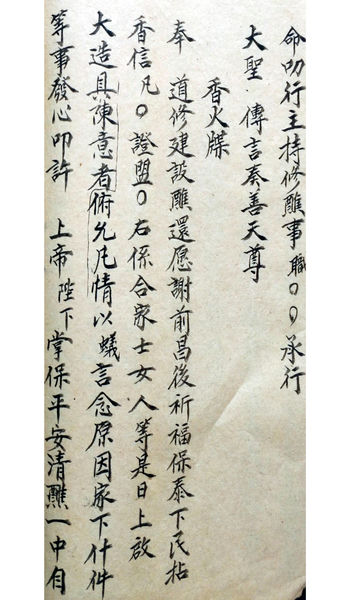 命叨行主持修醮事職〇〇承行
大聖傳言奏善天尊
香火牒
奉道修建設醮還愿謝前昌後祈福保泰下民拈
香信凢〇證盟〇右係合家士女人等是日上啟
大造具陳意者俯允凢情以蟻言念原因家下什件
等事發心叩許上帝陛下掌保平安清醮一中自